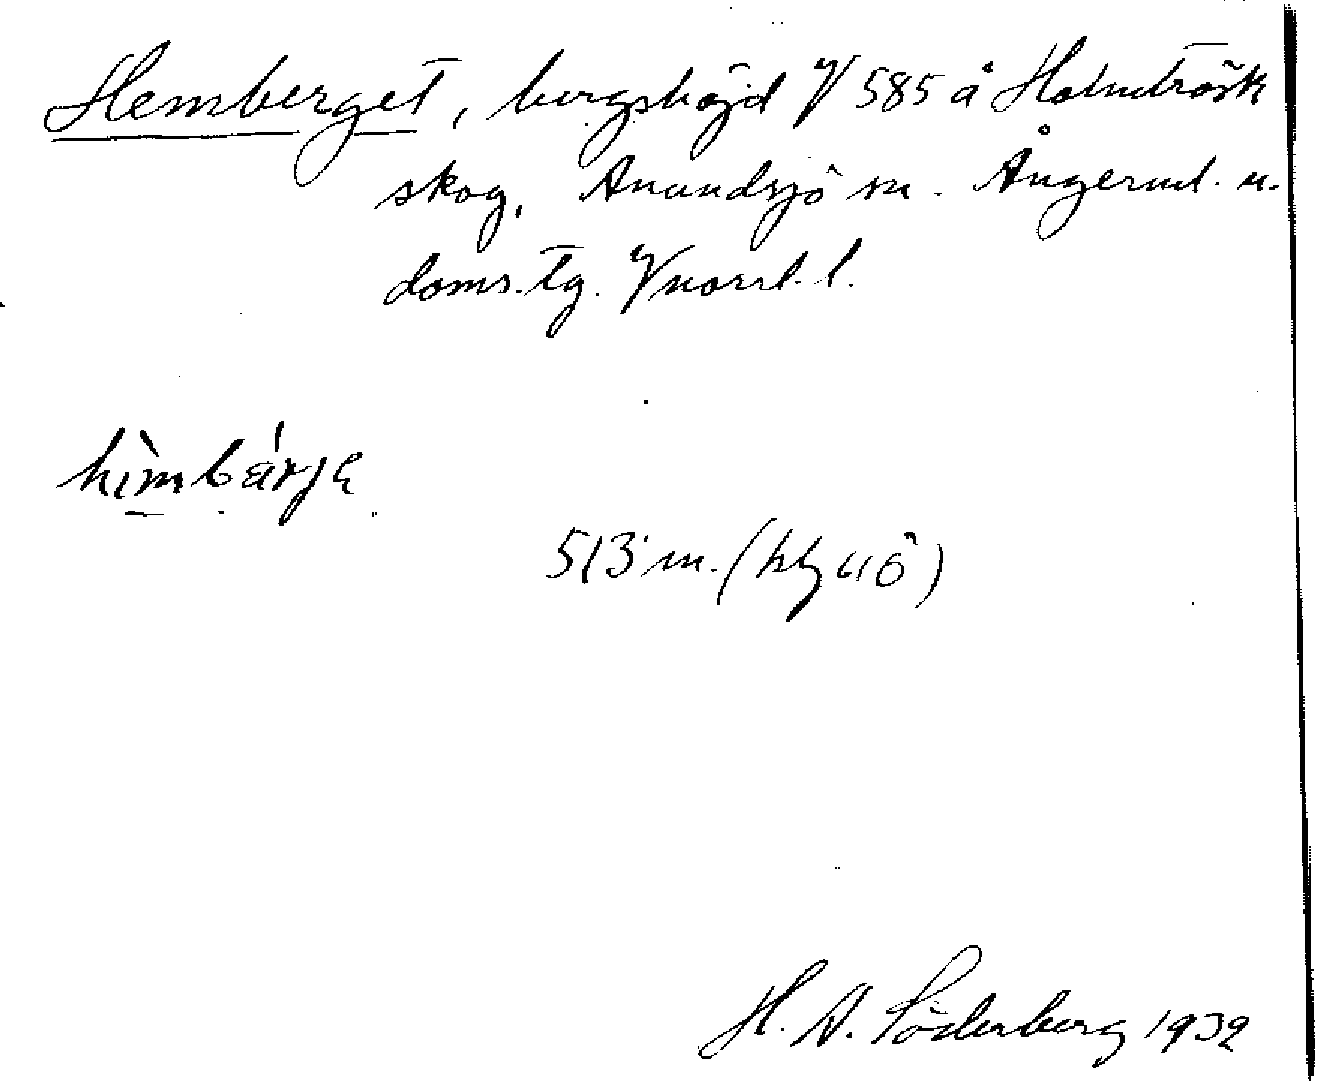 Hemberget, bergshöjd V 585 å Holmträsk
skog, Anundsjö sn. Ångerml. n.
doms. tg. Vnorrl. l.
hìmbárjɐ
513 m. (hly uö)
H. A. Söderberg 1932